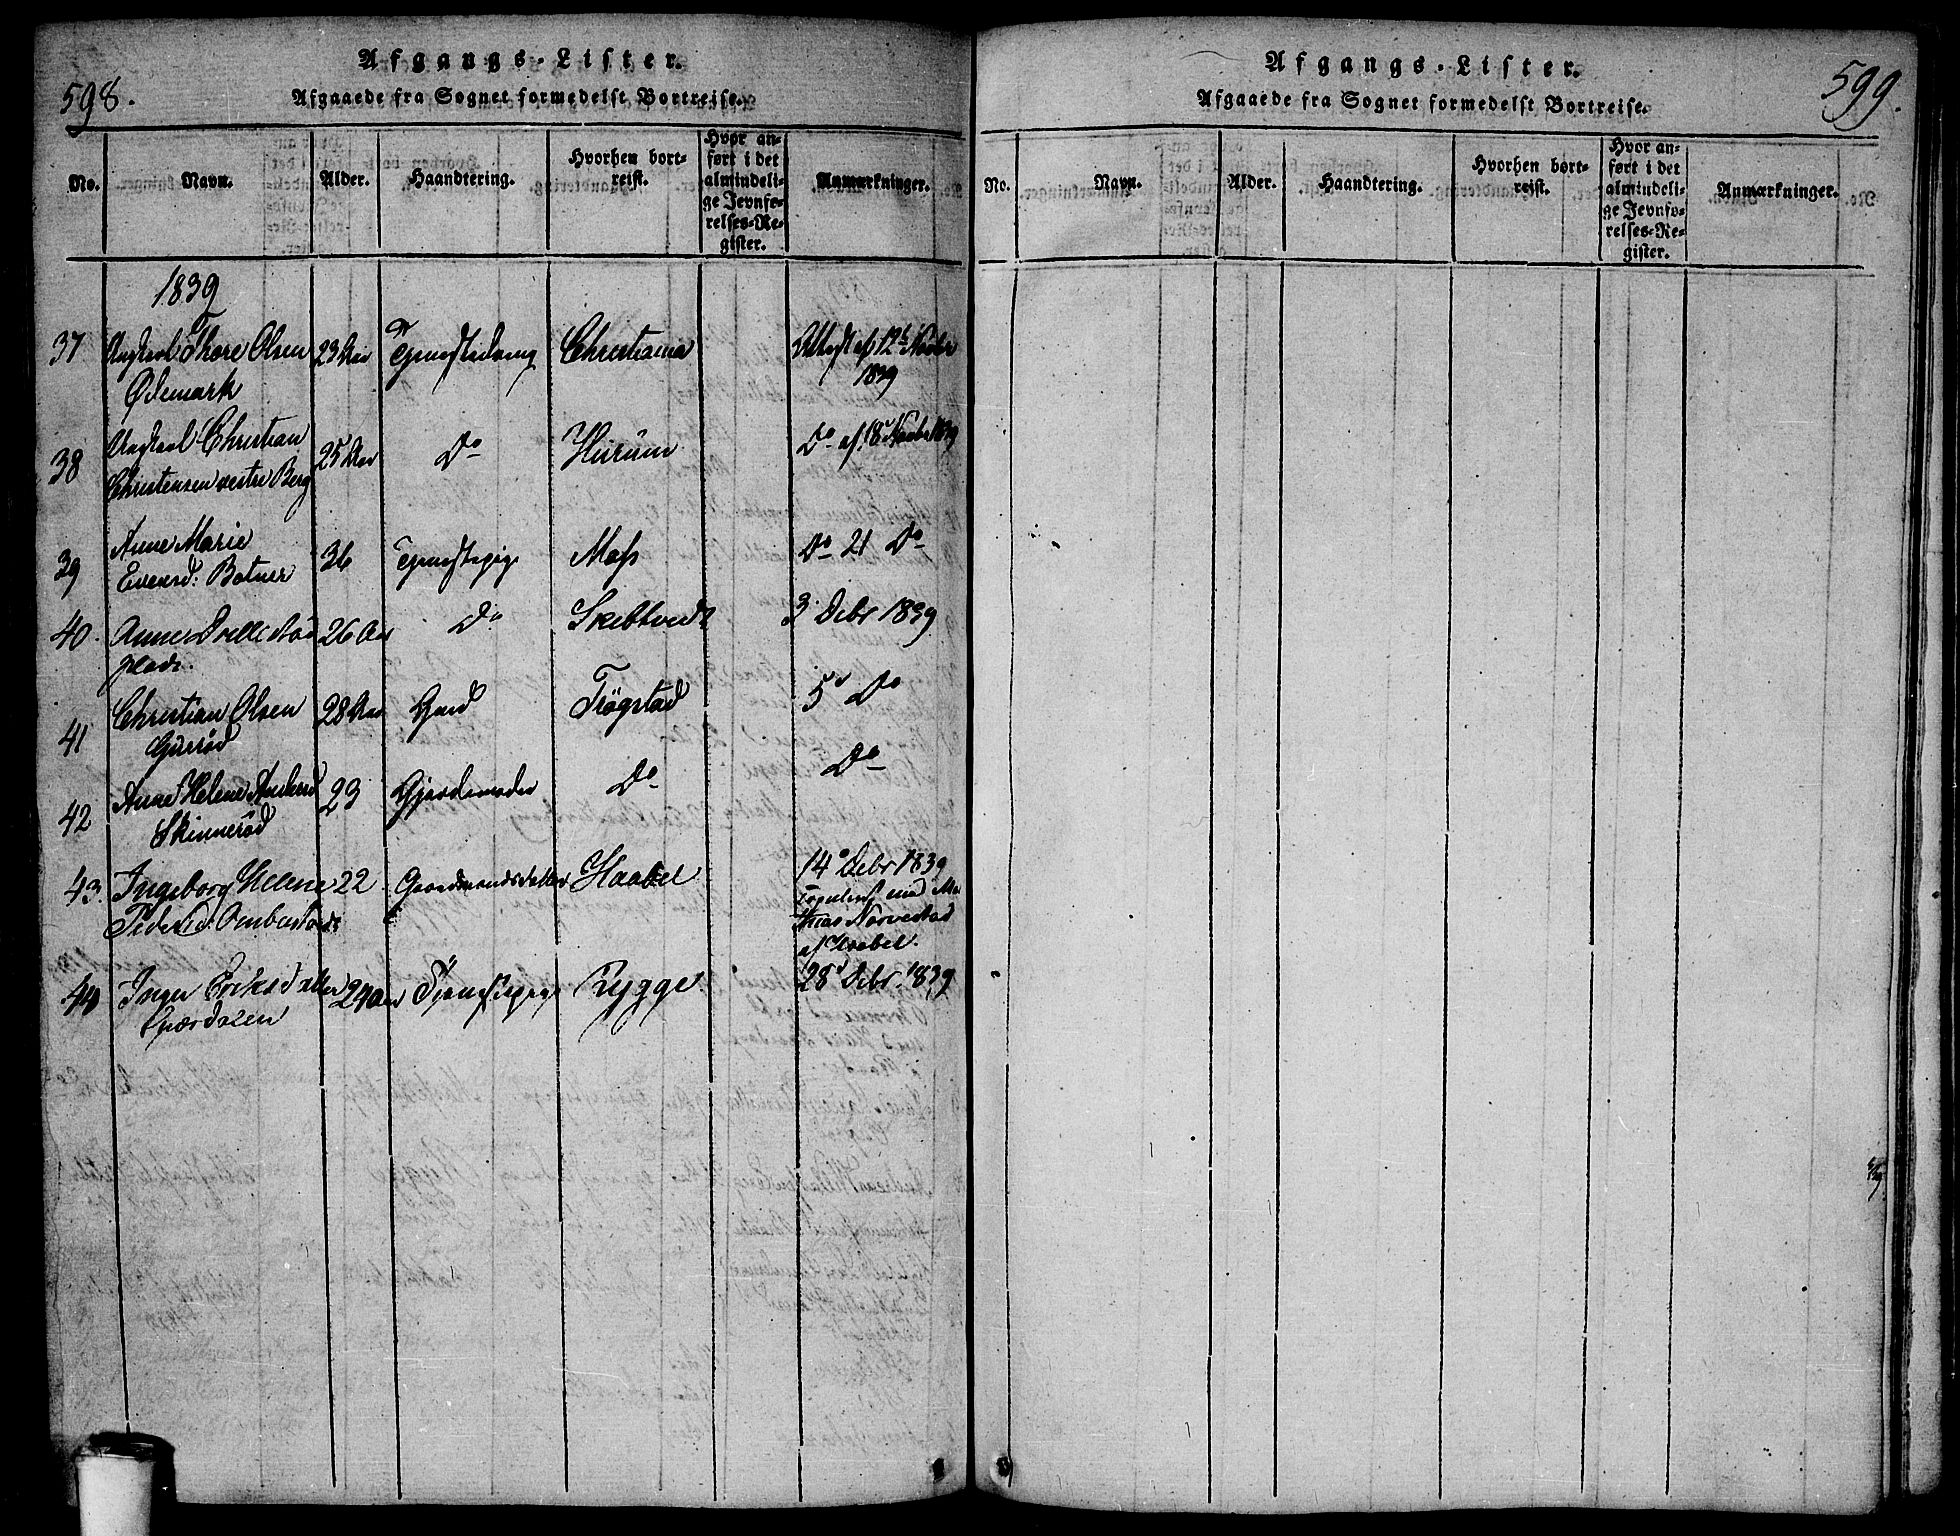 598.
Afgangs-Lister.
Afgaaede fra Sognet formedelst Bortreise.
No.
Navn.
Alder.
Haandtering.
Hvorhen bort-
reist.
Hvor an-
ført i det
almindeli-
ge Jevnfø-
relses-Re-
gister.
Anmærkninger.
1839
37
Ungkarl Thore Olsen
Ødemark
23 Aar
Tjenestedreng
Christiania
Attest af 12te Novbr
1839
38
Ungkarl Christian
Christensen vestre Berg
25 Aar
Do
Hurum
Do af 18 Novbr 1839
39
Anne Marie
Evensd: Botner
36
Tjenestepige
Moss
Do 21 Do
40.
Anne
plads.
26 Aar
Do
Skibtvedt
3 Debr 1839
41
Christian Olsen
28 Aar
Trögstad
5 Do
42
Anne Helene
Skinneröd
23
Do
Do
43.
Ingeborg Helene
Pedersd:
22
Gaardmandsdatter
Haabel
14 Debr 1839
med
af Haabel.
44
Inger Eriksdatter
24 Aar
Tjenestepige
Rygge
28 Debr. 1839
599.
Afgangs-Lister.
Afgaaede fra Sognet formedelst Bortreise.
No.
Navn.
Alder.
Haandtering.
Hvorhen bort-
reist.
Hvor an-
ført i det
almindeli-
ge Jevnfø-
relses-Re-
gister.
Anmærkninger.